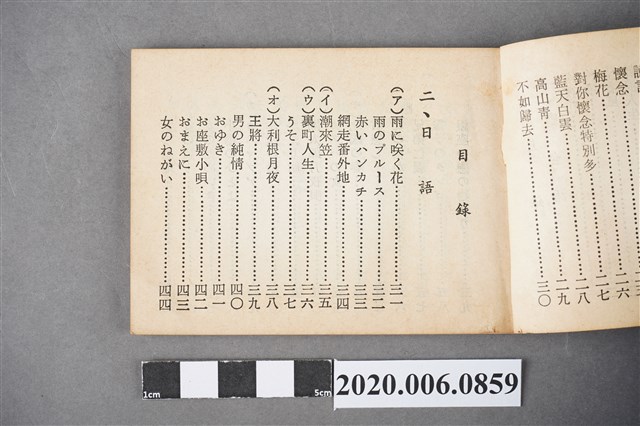 懷念
梅花……二六
對你懷念特別多……二七
藍天白雲……二八
高山青……二九
不如歸去……三〇
目錄
二、日語
(ア)雨に咲く花……三一
雨のブルース……三二
赤いハンカチ……三三
網走番外地……三四
(イ)潮來笠……三五
(ウ)裏町人生……三六
うそ……三七
(オ)大利根月夜……三八
王將……三九
男の純情……四〇
おゆき……四一
お座敷小唄……四二
おまえに……四三
女のねがい……四四
1cm
5cm
2020.006.0859